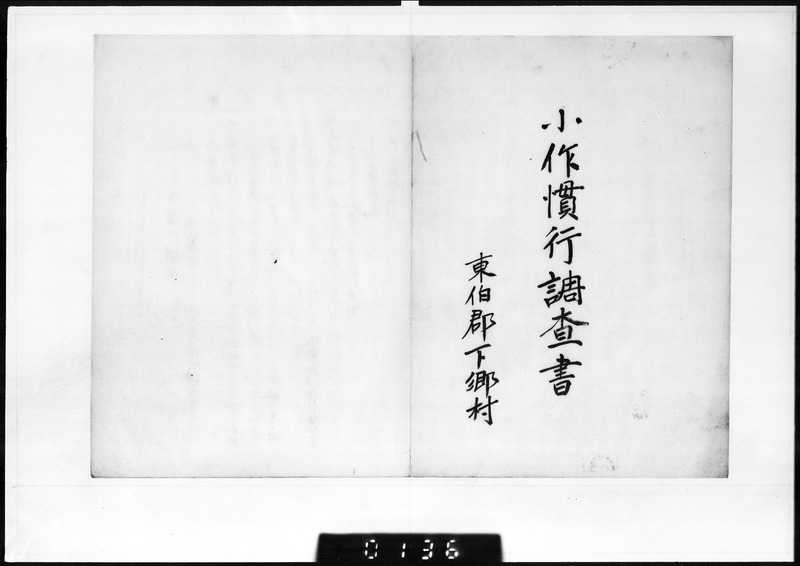 小作慣行調査書
東伯郡下郷村
0136